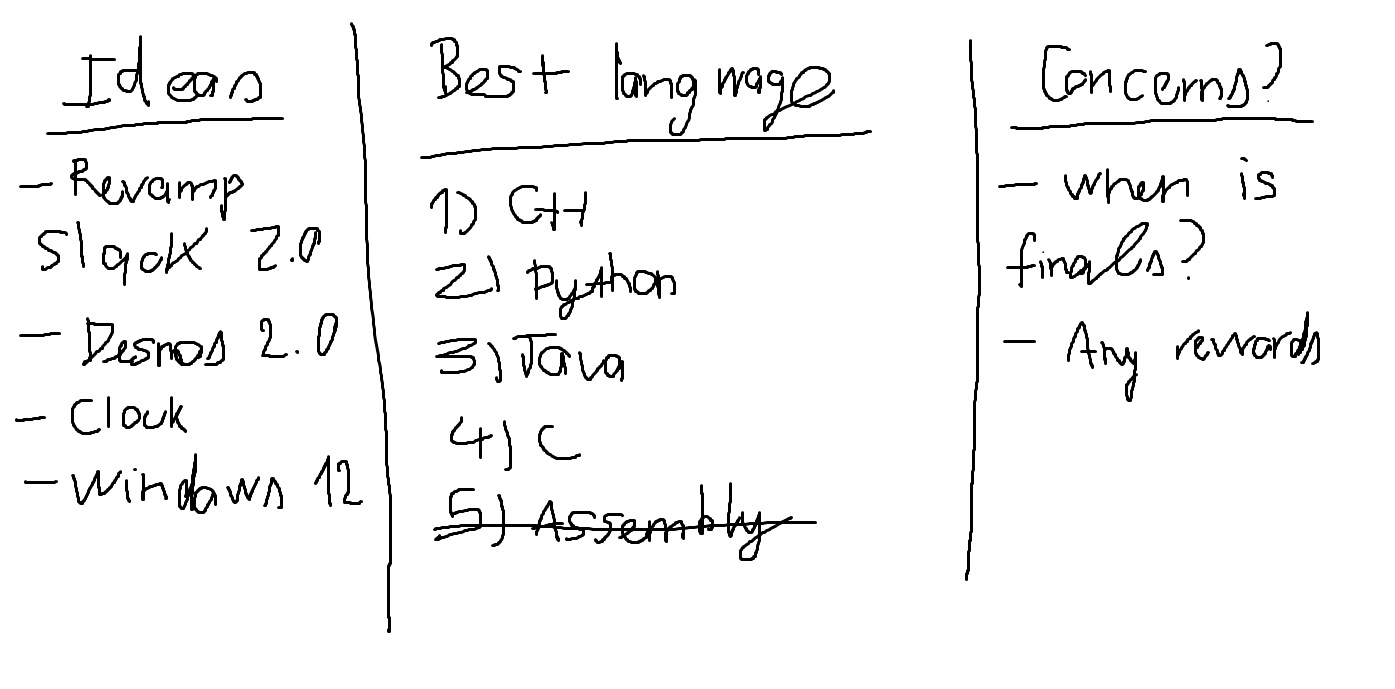 Ideas
- Revamp
Slack 2.0
- Desmos 2.0
- Clock
- Windows 12
Best language
1) C++
2) Python
3) Java
4) C
5) Assembly
Concerns?
- When is
finals?
- Any rewards